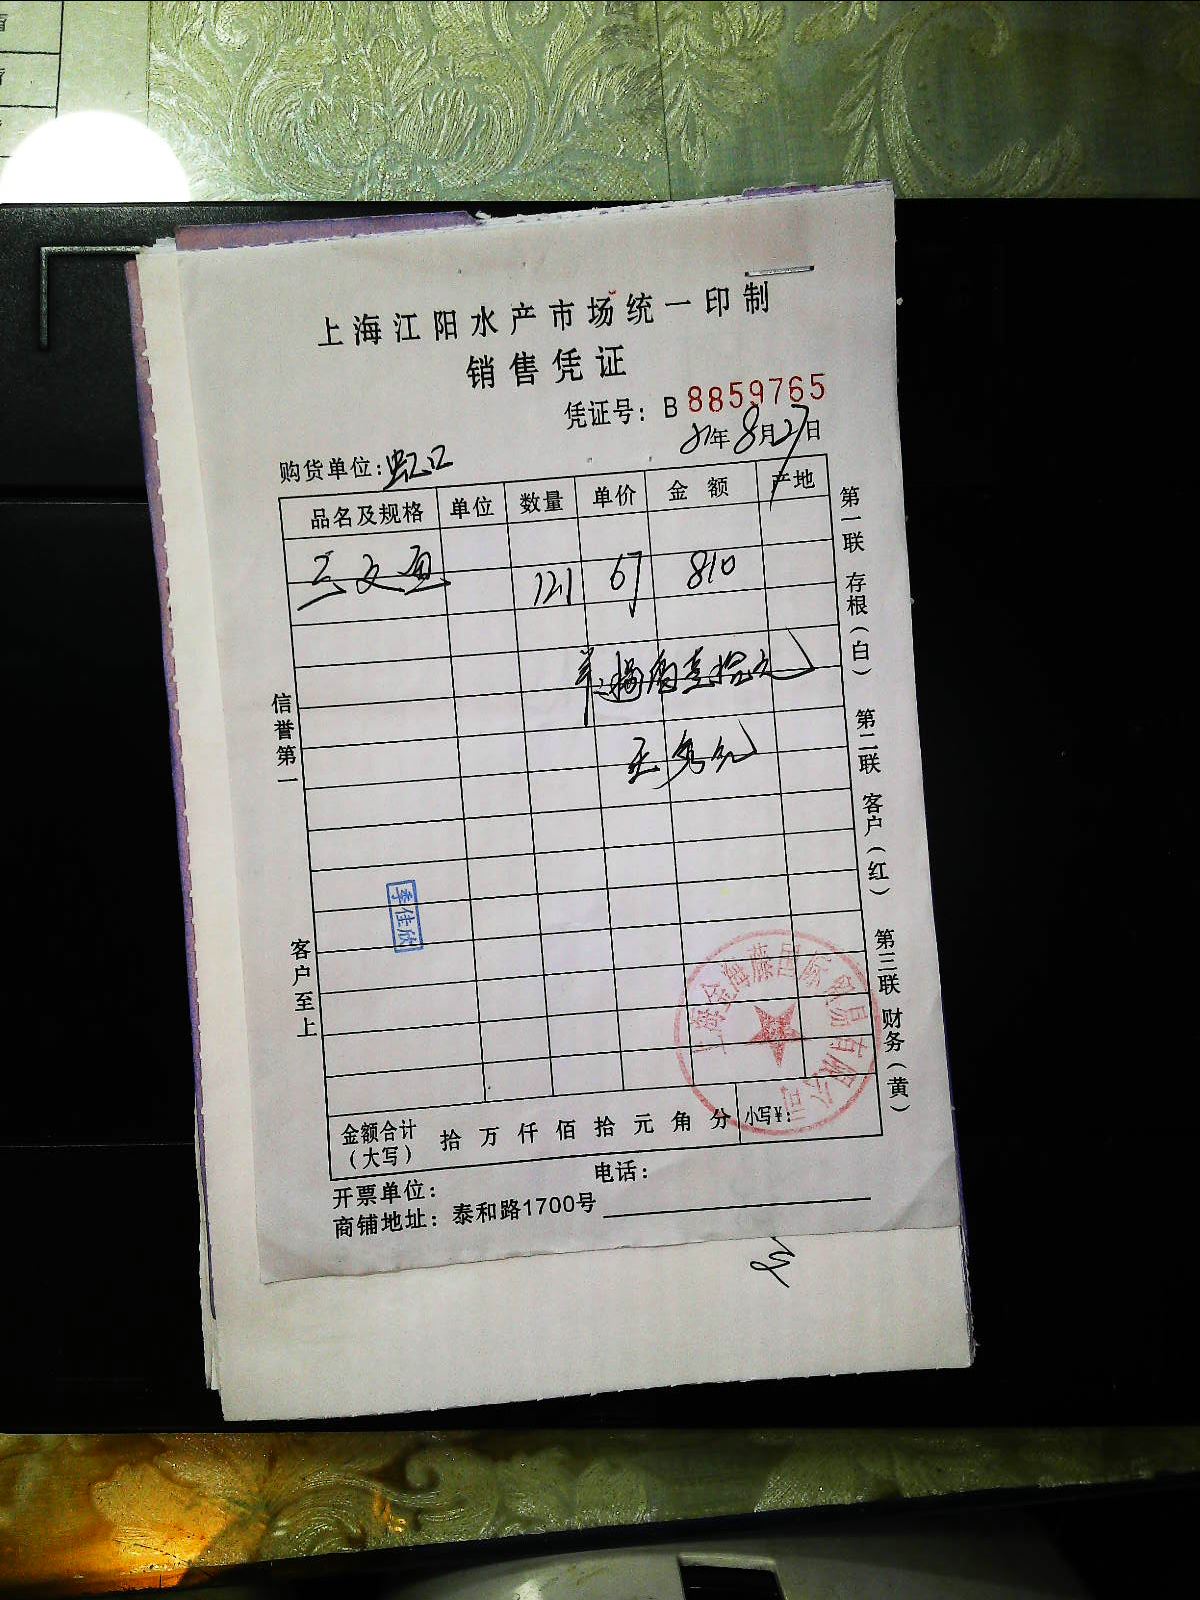 上海江阳水产市场统一印制
销售凭证
凭证号：B 8859765
年8月27日
购货单位：虹口
品名及规格 单位 数量 单价 金额 产地
三文鱼 121 67 810
捌佰壹拾元
信誉第一
客户至上
李佳欣
第一联 存根（白） 第二联 客户（红） 第三联 财务（黄）
上海金海藤国际贸易有限公司
金额合计（大写） 拾 万 仟 佰 拾 元 角 分 小写¥：
开票单位： 电话：
商铺地址：泰和路1700号